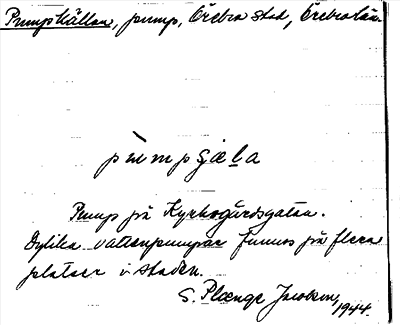 Pumpkällan, pump, Örebro stad, Örebro län.
pùmpꞔæḷa
Pump på Kyrkogårdsgatan.
Dylika vattenpumpar finnas på flera
platser i staden.
S. Plænge Jacobson, 1944.